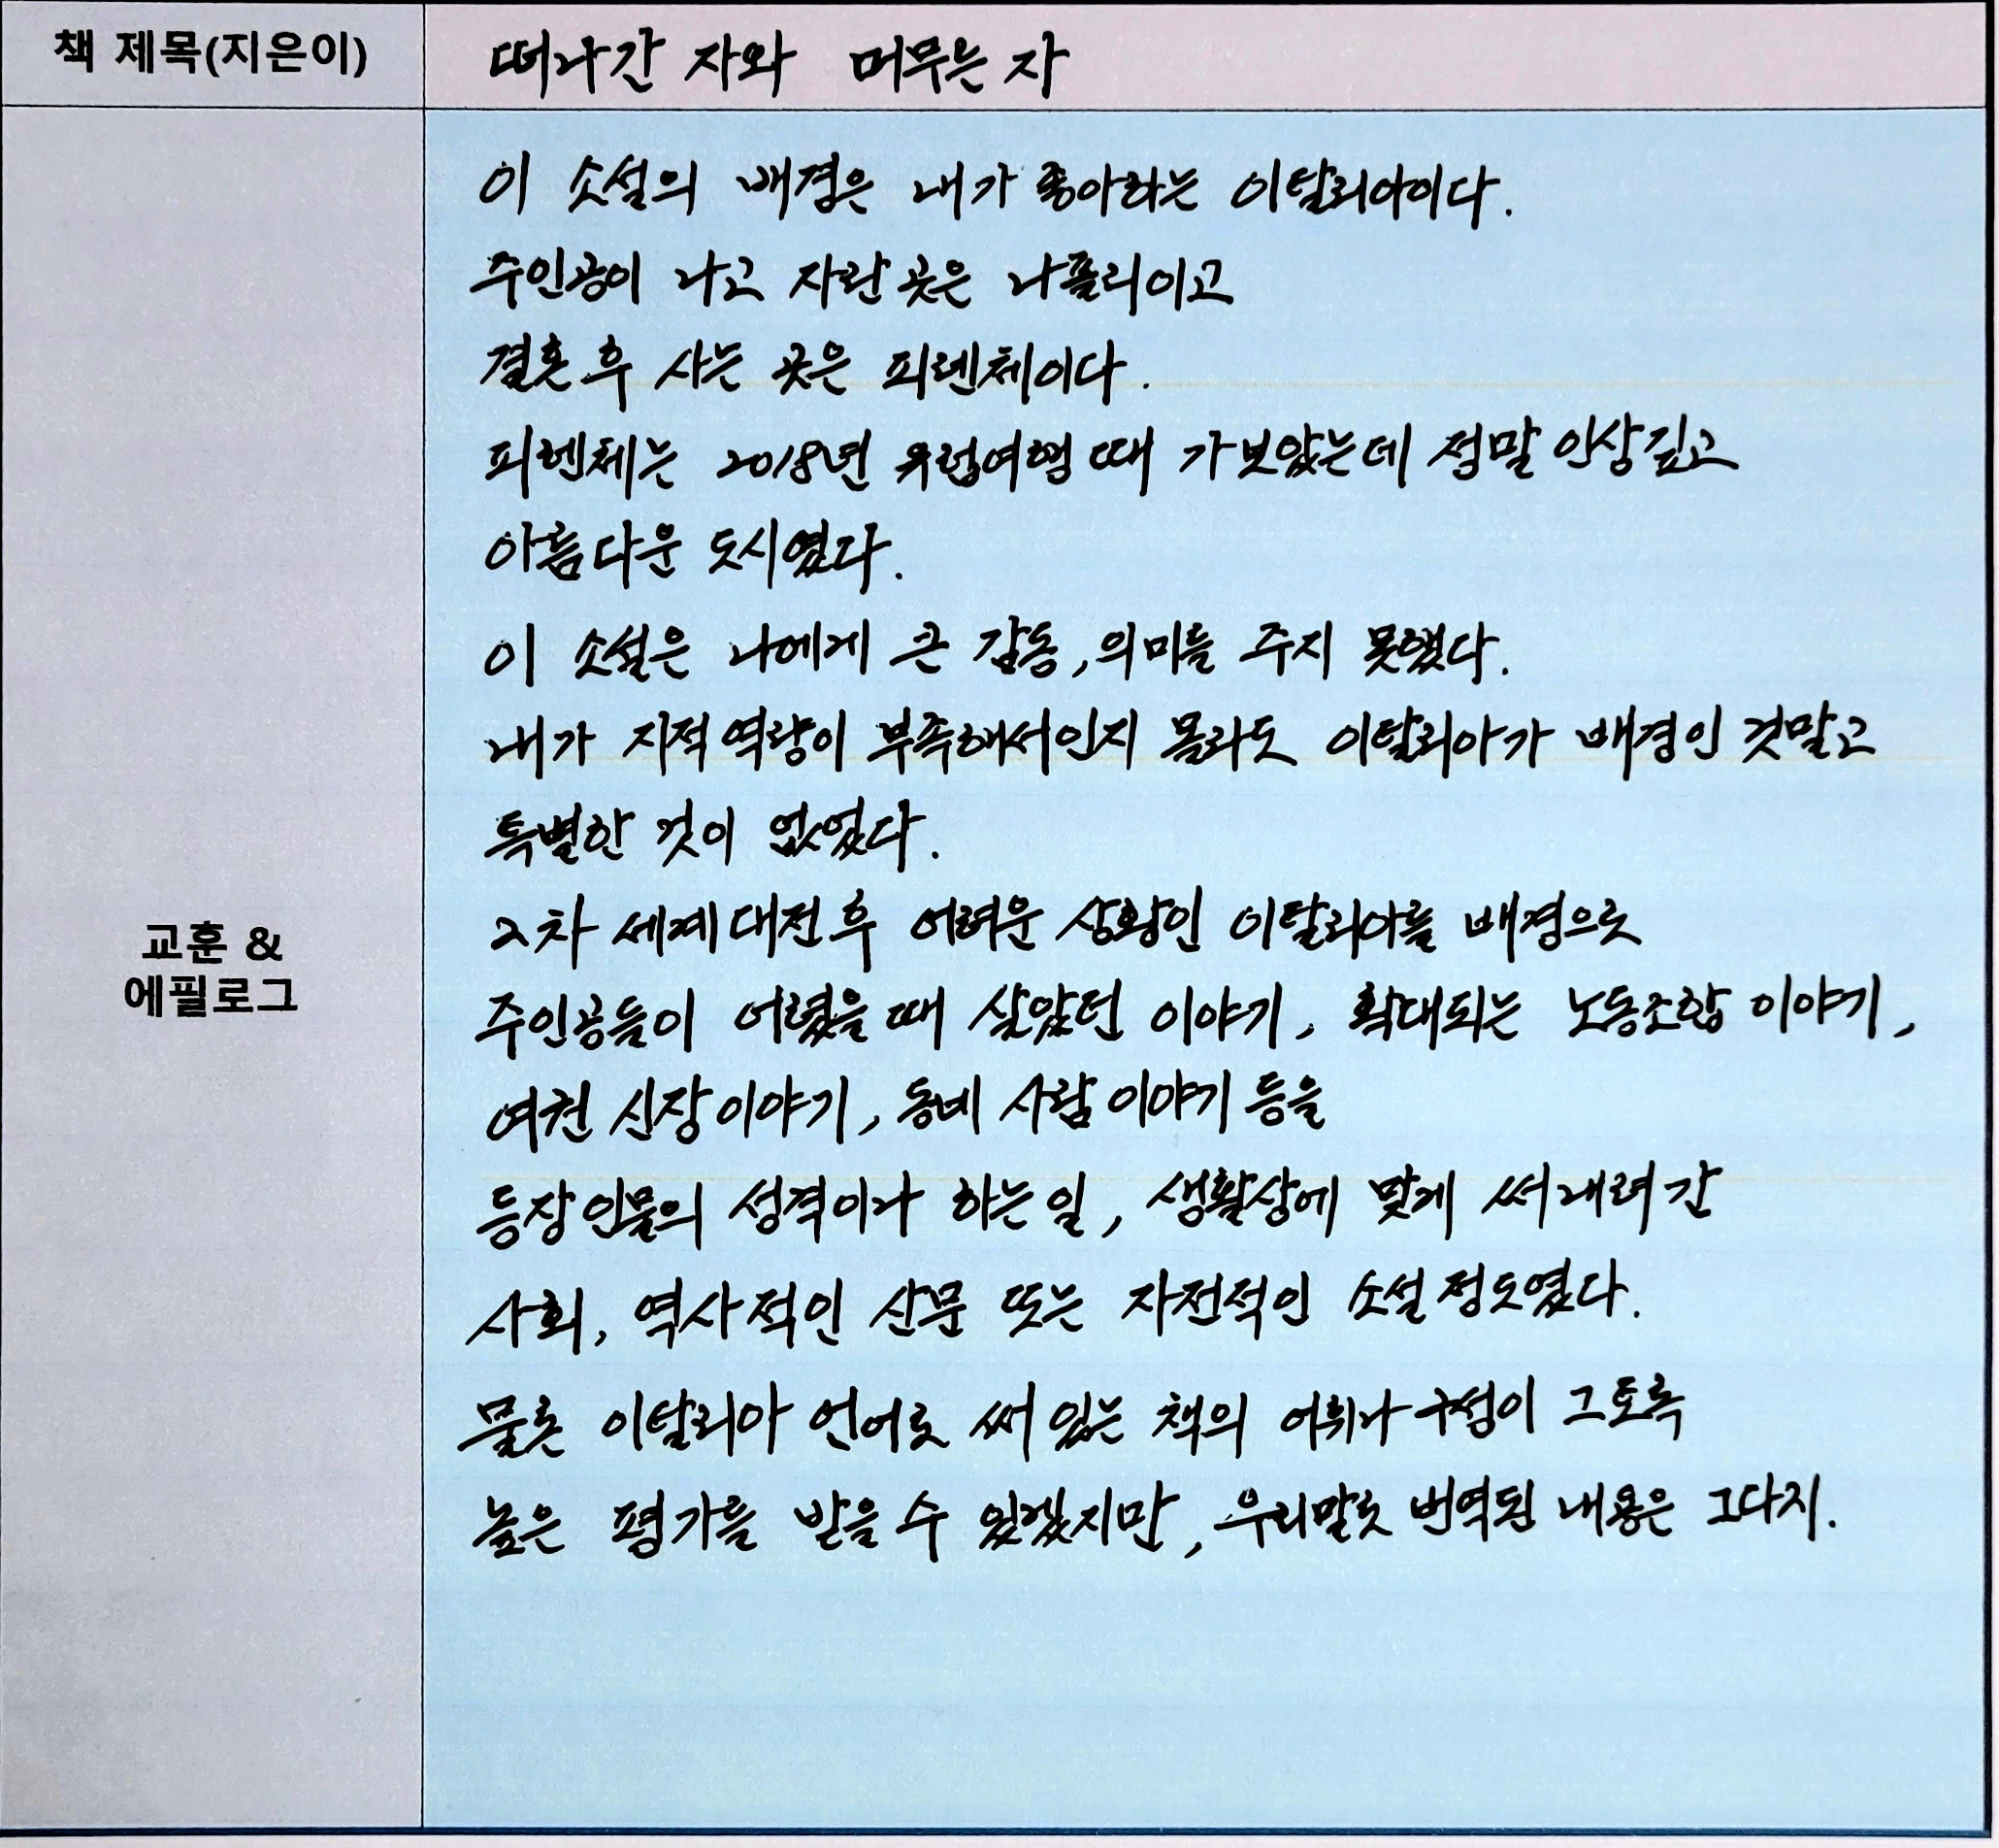 책 제목(지은이)
떠나간 자와 머무는 자
이 소설의 배경은 내가 좋아하는 이탈리아이다.
주인공이 나고 자란 곳은 나폴리이고
결혼 후 사는 곳은 피렌체이다.
피렌체는 2018년 유럽여행 때 가보았는데 정말 인상깊고
아름다운 도시였다.
이 소설은 나에게 큰 감동, 의미를 주지 못했다.
내가 지적 역량이 부족해서인지 몰라도 이탈리아가 배경인 것말고
특별한 것이 없었다.
교훈 &
에필로그
2차 세계대전 후 어려운 상황인 이탈리아를 배경으로
주인공들이 어렸을 때 살았던 이야기, 확대되는 노동조합 이야기,
여권 신장 이야기, 동네 사람 이야기 등을
등장인물의 성격이나 하는 일, 생활상에 맞게 써내려간
사회, 역사적인 산문 또는 자전적인 소설 정도였다.
물론 이탈리아 언어로 써 있는 책의 어휘나 구성이 그토록
높은 평가를 받을 수 있겠지만, 우리말로 번역된 내용은 그다지.